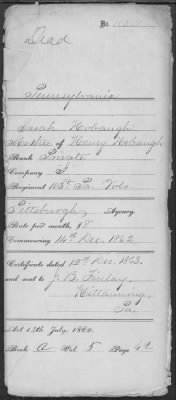 No.
Dead
Pennsylvania
Sarah Hobaugh
Mother of Henry Hobaugh
Rank Private
Company
Regiment 103d Pa Vols
Pittsburgh, Agency.
Rate per month, $8
Commencing 14th Dec. 1862
Certificate dated 12th Dec. 1863.
and sent to J. B. Finlay,
Kittanning,
Pa.
Act 14th July, 1862.
Book A Vol. 5 Page 42